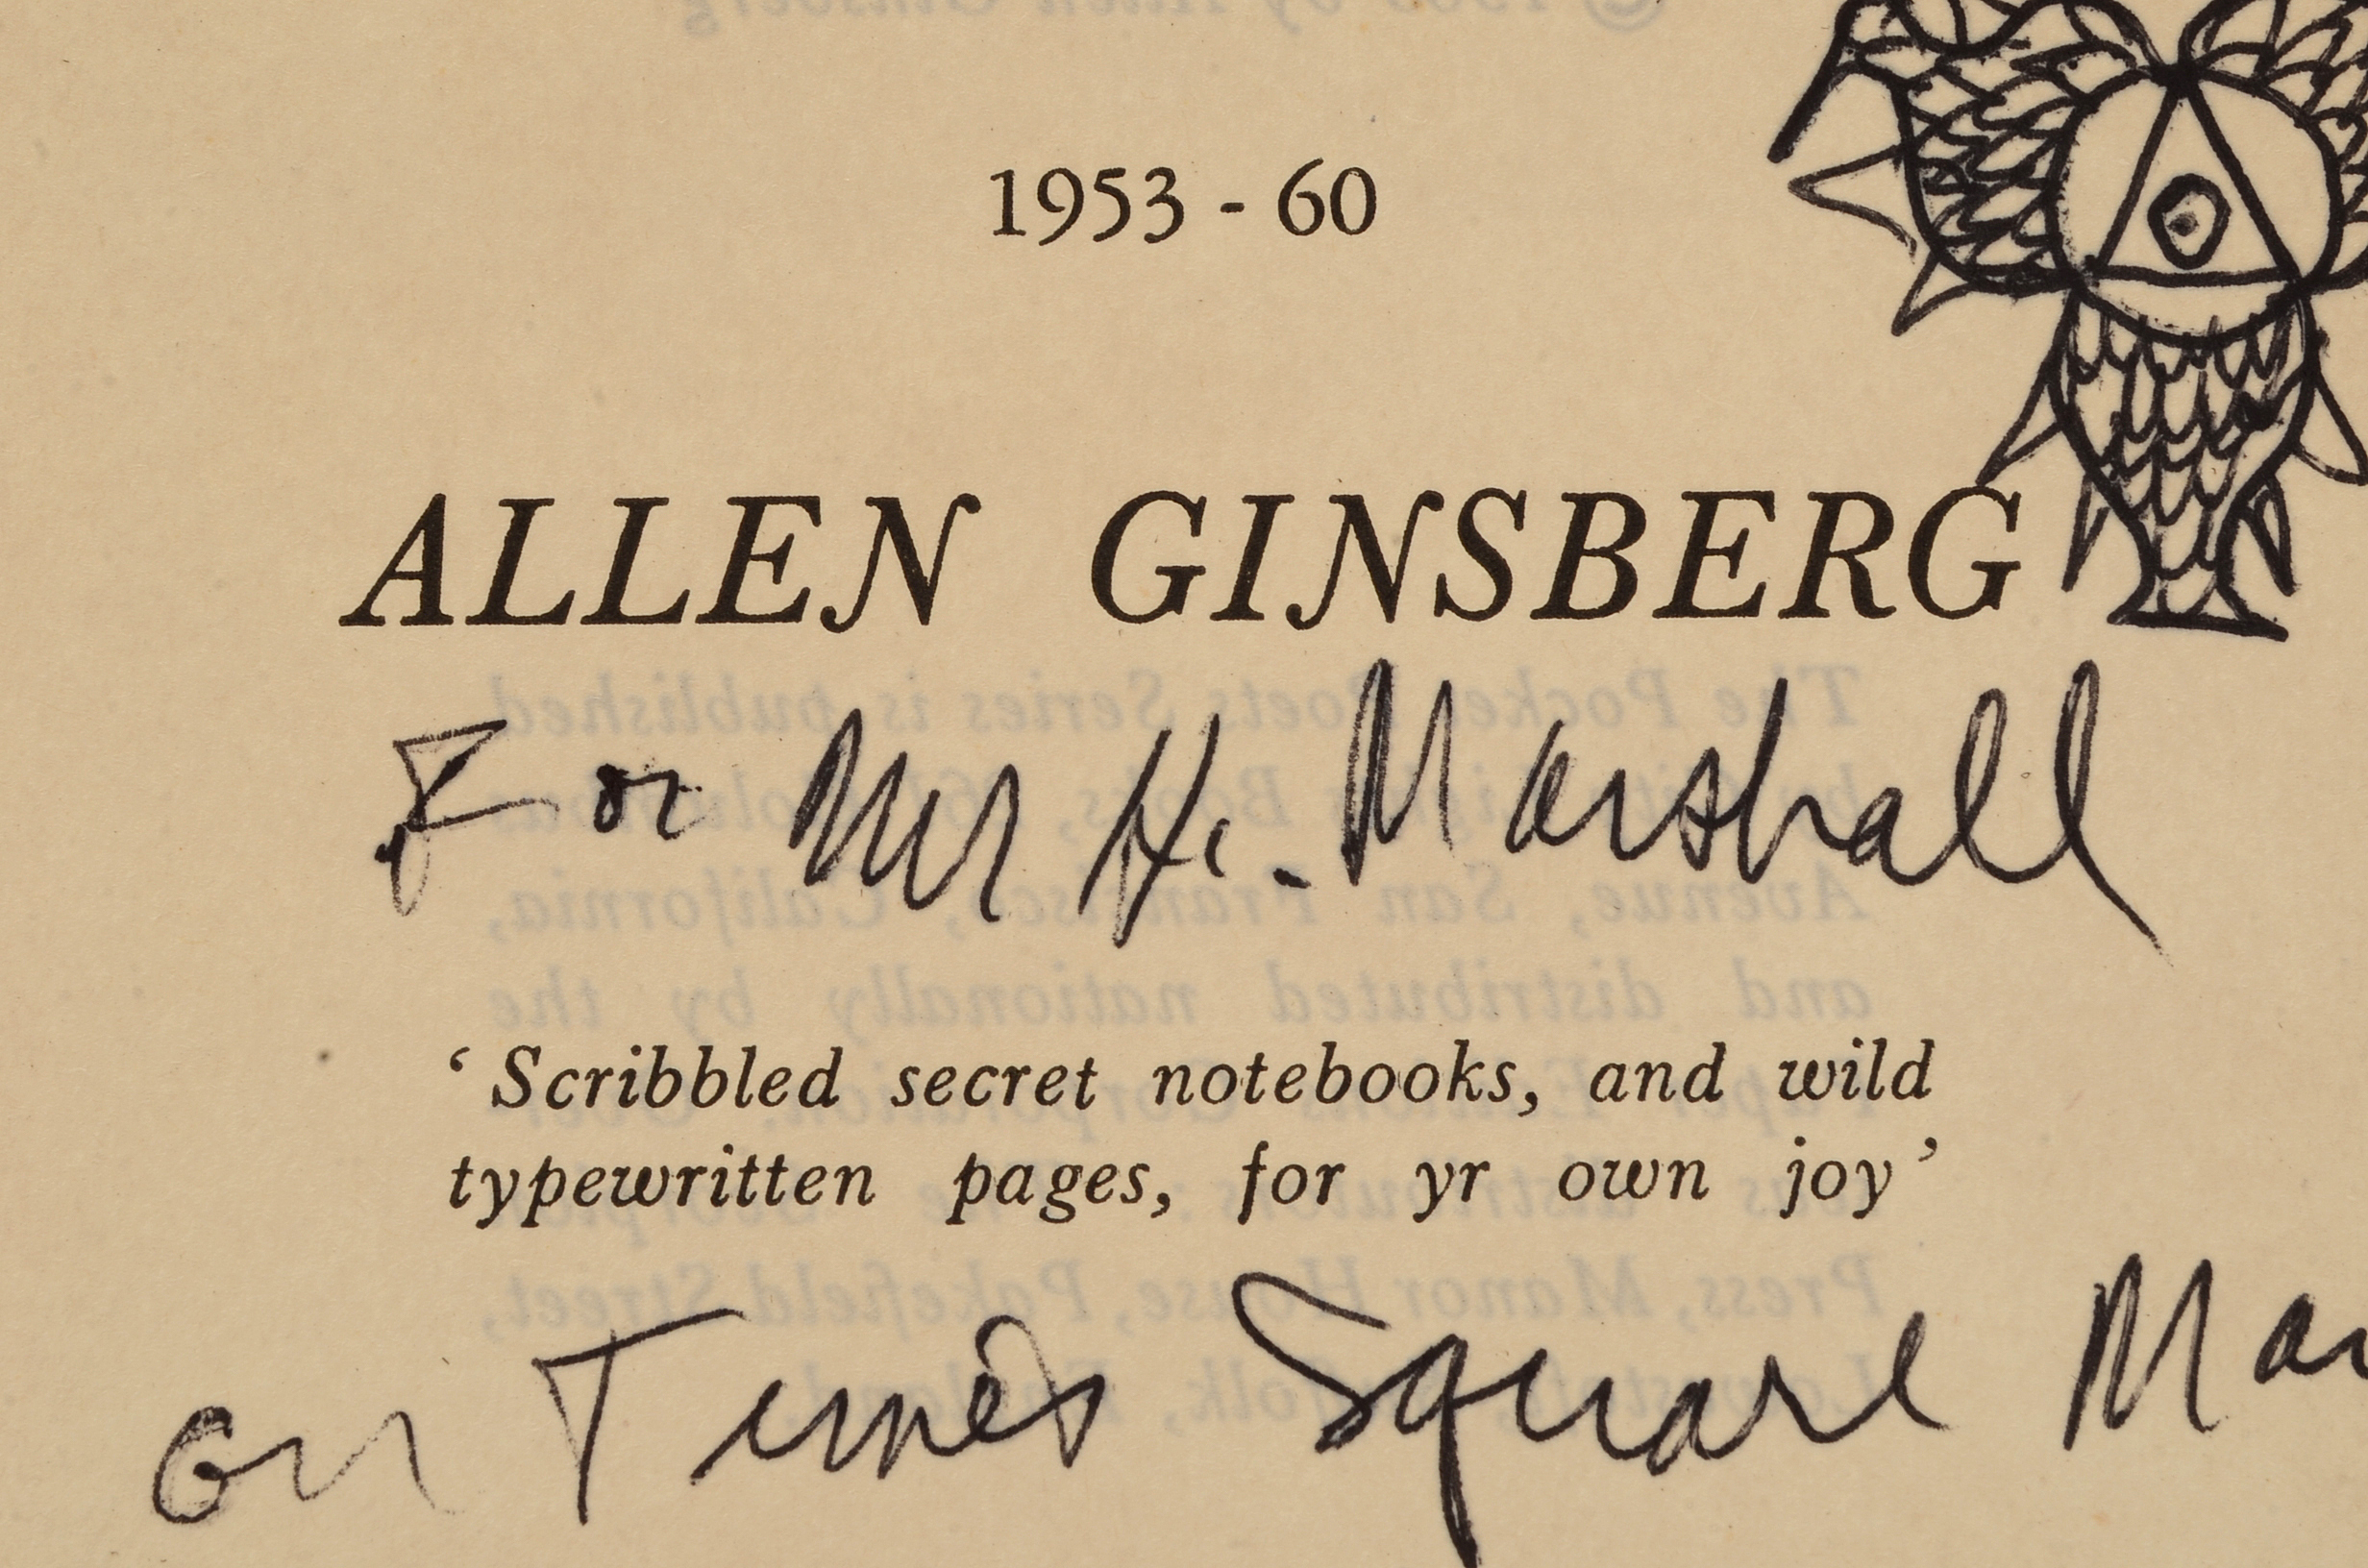 1953 - 60
ALLEN GINSBERG
For Mr H. Marshall
‘Scribbled secret notebooks, and wild
typewritten pages, for yr own joy’
on Times Square Mar